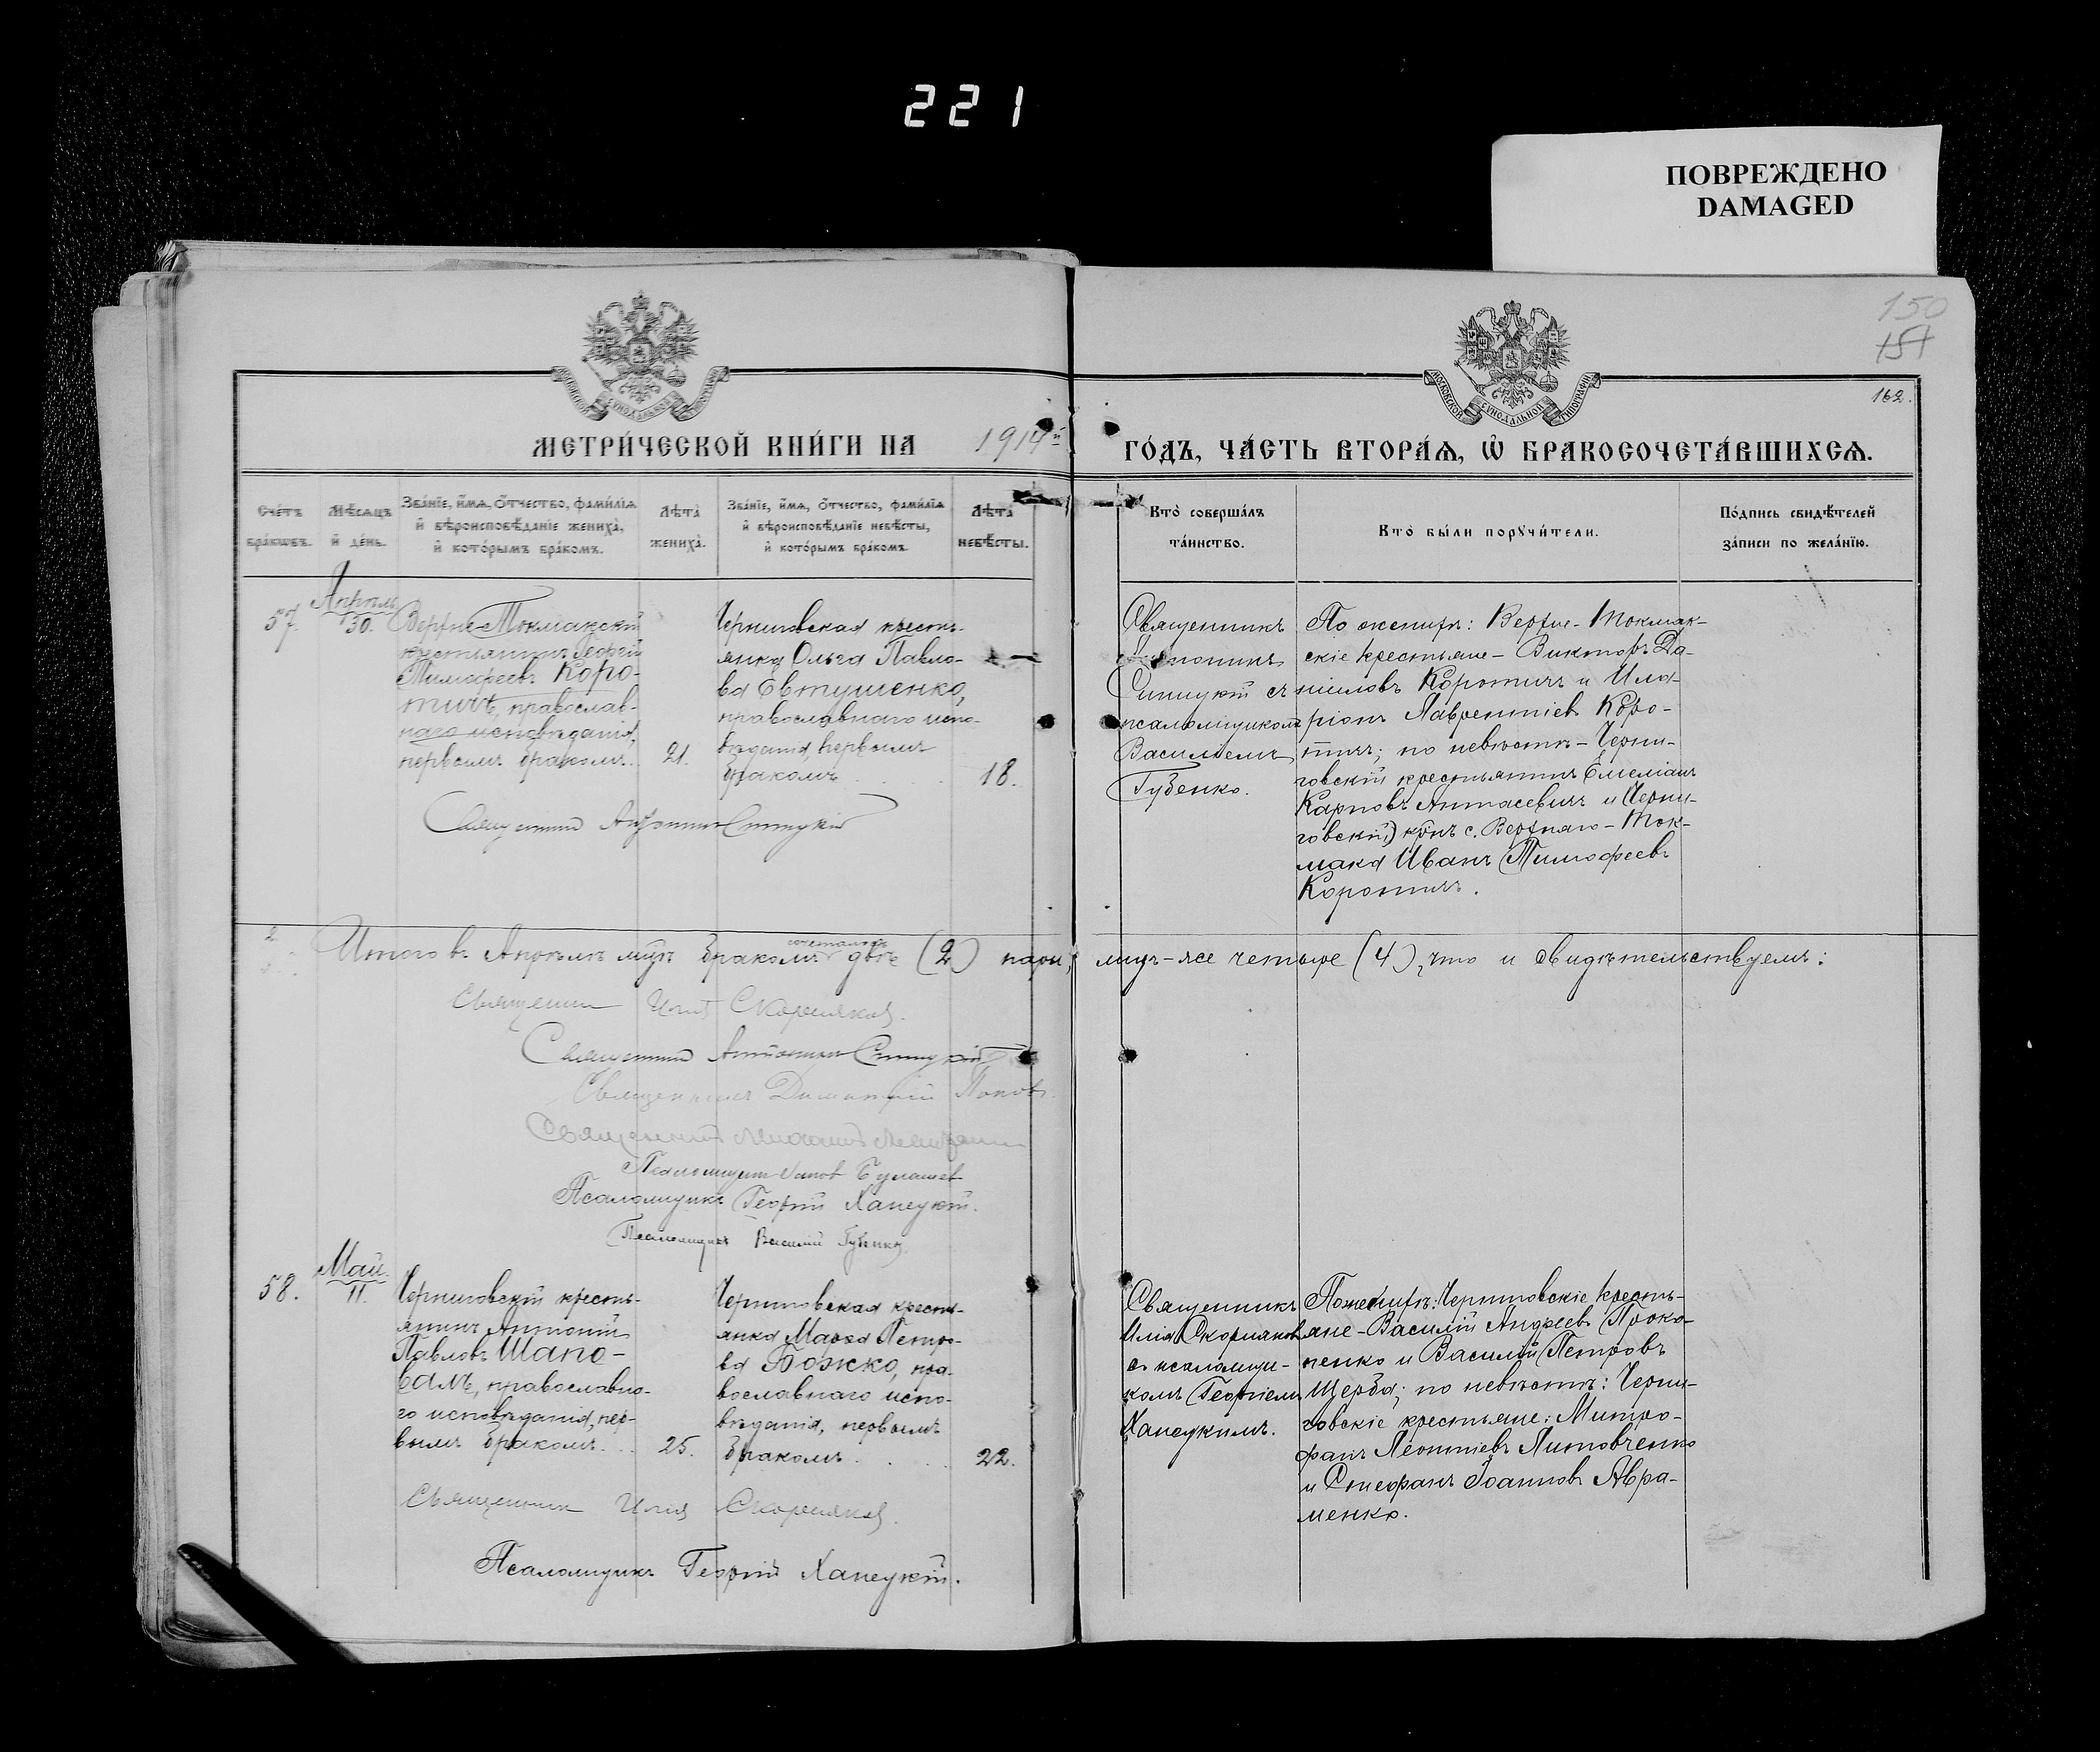 221
ПОВРЕЖДЕНО
DAMAGED
150
151
162.
МОСКОВСКОЙ СѴНОДАЛЬНОЙ ТИПОГРАФІИ
МОСКОВСКОЙ СѴНОДАЛЬНОЙ ТИПОГРАФІИ
МЕТРИ́ЧЕСКОЙ КНИ́ГИ НА 1914й
ГО́ДЪ, ЧА́СТЬ ВТОРА́Ѧ, Ѡ҆ БРАКОСОЧЕТА́ВШИХСѦ.
Сче́тъ
бра́кωвъ.
Мѣ́сѧцъ
и҆ де́нь.
Зва́нїе, и҆́мѧ, ѻ҆́тчество, фами́лїѧ
и҆ вѣроисповѣ́данїе жениха̀,
и҆ кото́рымъ бра́комъ.
Лѣ́та̀
жениха̀.
Зва́нїе, и҆́мѧ, ѻ҆́тчество, фами́лїѧ
и҆ вѣроисповѣ́данїе невѣ́сты,
и҆ кото́рымъ бра́комъ.
Лѣ́та̀
невѣ́сты.
Кто̀ соверша́лъ
та́инство.
Кто̀ бы́ли порꙋчи́тели.
По́дпись свидѣ́телей
за́писи по жела́нїю.
57.
Апрѣль
30.
Верхне-Токмакскій
крестьянинъ Георгій
Тимофеевъ Коро-
тичъ, православ-
наго исповѣданія,
первымъ бракомъ.
21.
Черниговская кресть-
янка Ольга Павло-
ва Евтушенко,
православнаго испо-
вѣданія, первымъ
бракомъ . . .
18.
Священникъ
Антонинъ
Синицкій съ
псаломщикомъ
Василіемъ
Губенко.
По женихѣ: Верхне-Токмак-
скіе крестьяне - Викторъ Да-
ніиловъ Коротичъ и Ила-
ріонъ Лаврентіевъ Коро-
тичъ; по невѣстѣ - Черни-
говскій крестьянинъ Емеліанъ
Карповъ Антасевичъ и Черни-
говскій) кр̃нъ с. Верхняго-Ток-
мака Иванъ Тимофеевъ
Коротичъ.
Священникъ Антонинъ Синицкій
Итого въ Апрѣлѣ мц̃ѣ бракомъ сочеталось двѣ (2) пары, лицъ-же четыре (4), что и свидѣтельствуемъ:
Священникъ Илія Скорняковъ.
Священникъ Антонинъ Синицкій
Священникъ Димитрій Поповъ.
Священникъ Михаилъ
Псаломщикъ
Псаломщикъ Георгій Ханецкій.
Псаломщикъ Василій Губенко.
58.
Май.
11.
Черниговскій кресть-
янинъ Антоній
Павловъ Шапо-
валъ, православна-
го исповѣданія, пер-
вымъ бракомъ. . .
25.
Черниговская кресть-
янка Марѳа Петро-
ва Божко, пра-
вославнаго испо-
вѣданія, первымъ
бракомъ . . . .
22.
Священникъ
Илія Скорняковъ
съ псаломщи-
комъ Георгіемъ
Ханецкимъ.
По женихѣ: Черниговскіе кресть-
яне - Василій Андреевъ Проко-
пенко и Василій Петровъ
Щерба; по невѣстѣ: Черни-
говскіе крестьяне: Митро-
фанъ Леонтіевъ Литовченко
и Стефанъ Іоанновъ Авра-
менко.
Священникъ Илія Скорняковъ.
Псаломщикъ Георгій Ханецкій.